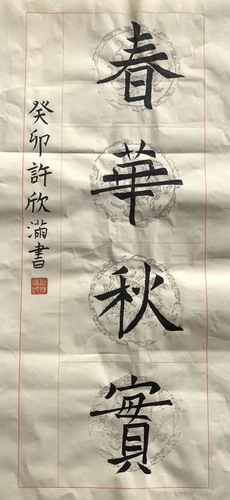 春華秋實
癸卯許欣滿書